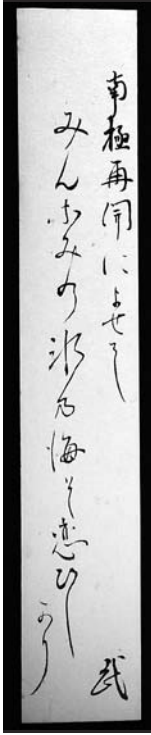 南極再開によせて
みんなみの氷乃海そ恋ひしかり
武